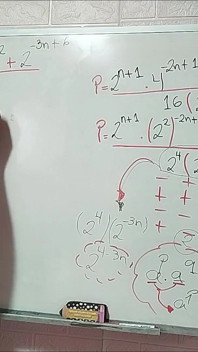 2 + 2^{-3n+6}
P = 2^{n+1} · 4^{-2n+1}
16(
P = 2^{n+1} · (2^2)^{-2n+
2^4(2
(2^4)(2^{-3n})
2^{4-3n}
a^p · a^q
a^p